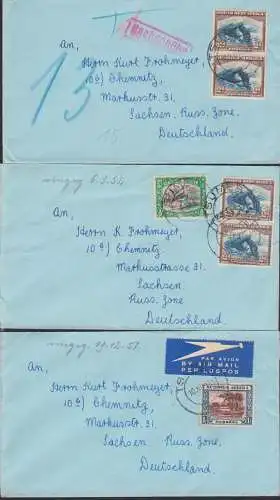 An,
Herrn Kurt Frohmeyer,
10b) Chemnitz,
Markusstr. 31,
Sachsen, Russ. Zone,
Deutschland.
13
15
SOUTH WEST AFRICA
6.3.54
An,
Herrn K. Frohmeyer,
10b) Chemnitz,
Markusstrasse 31.
Sachsen
Russ. Zone
Deutschland.
PAR AVION
BY AIR MAIL
PER LUGPOS
An,
Herrn Kurt Frohmeyer,
10b) Chemnitz,
Markusstr. 31,
Sachsen Russ. Zone,
Deutschland.